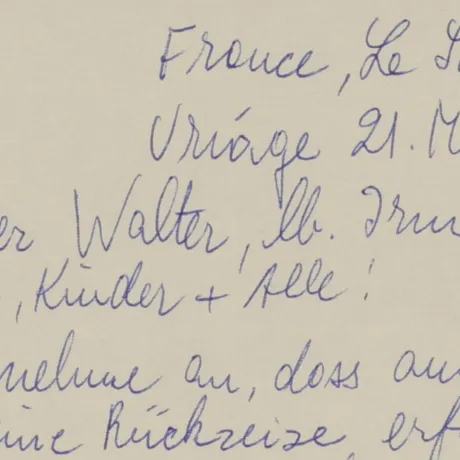 France, Le S
Uriáge 21. M
er Walter, lb. Irm
, Kinder + Alle!
nehme an, dass au
ine Rückreise, erf